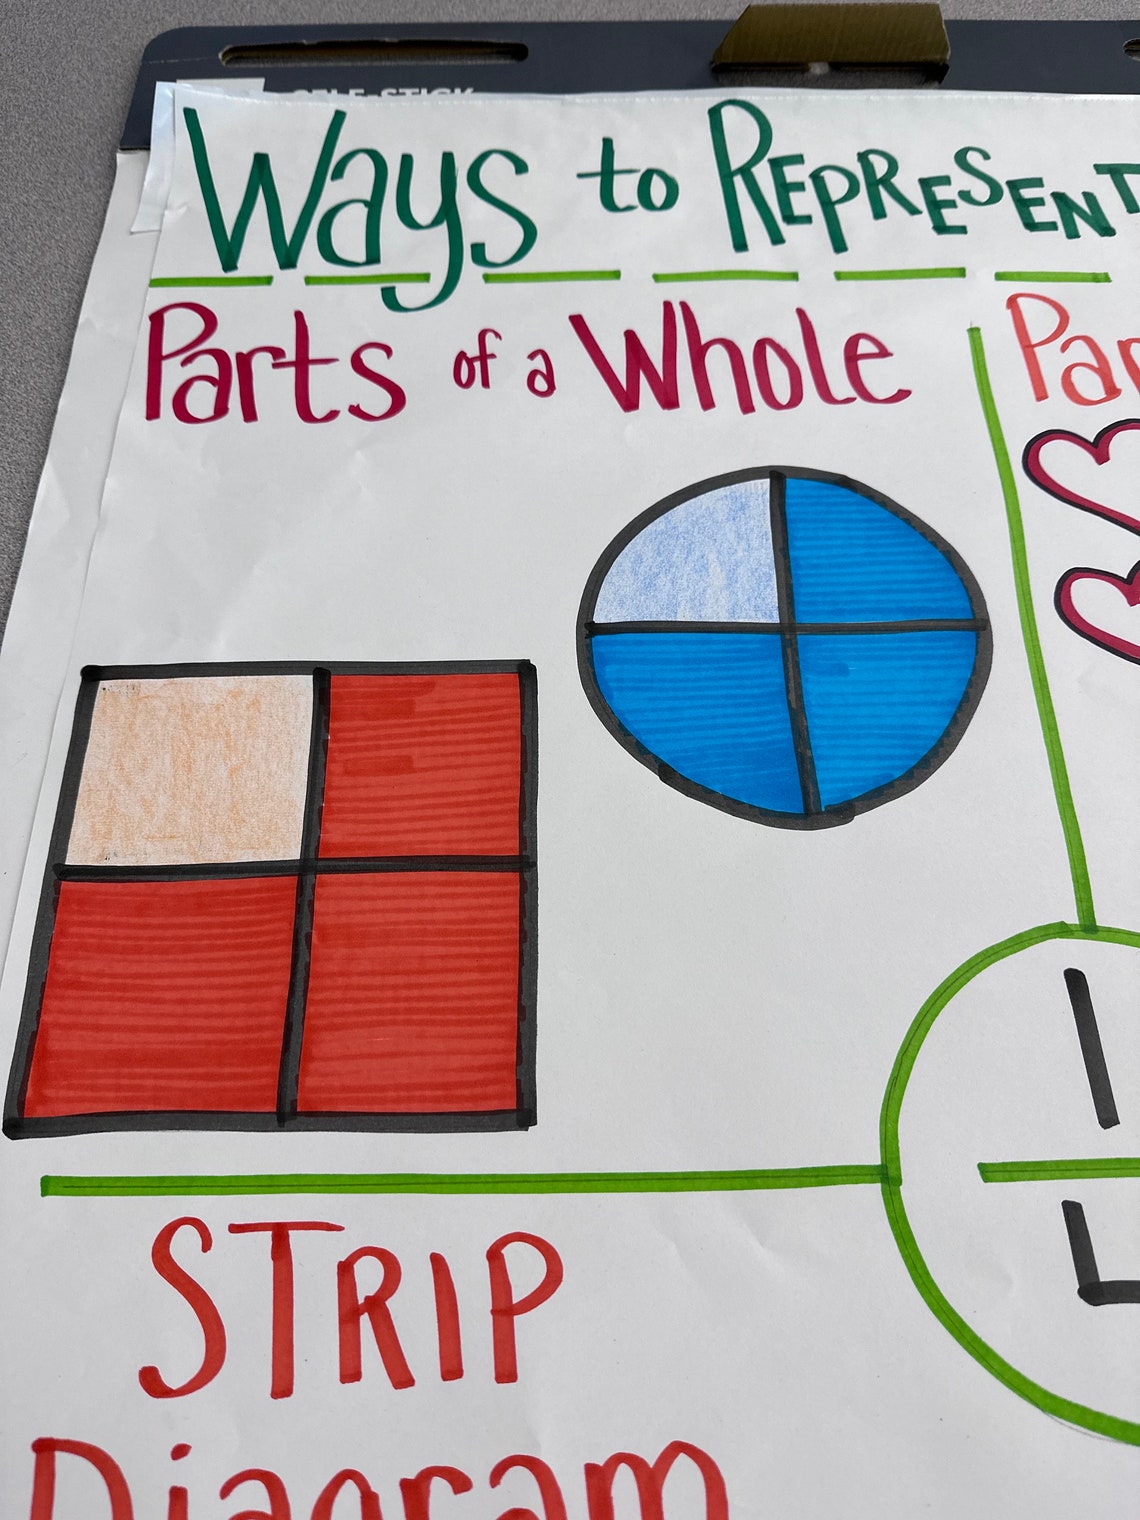 SELF-STICK
Ways to REPRESENT
Parts of a Whole
Par
1
STRIP
Diagram